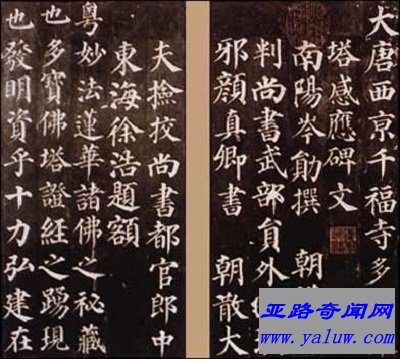 大唐西京千福寺多
塔感應碑文
南陽岑勛撰 朝
判尚書武部員外
邪顏真卿書 朝散大
夫撿挍尚書都官郎中
東海徐浩題額
粵妙法蓮華諸佛之秘藏
也多寶佛塔證經之踴現
也發明資乎十力弘建在
亚路奇闻网
www.yaluw.com